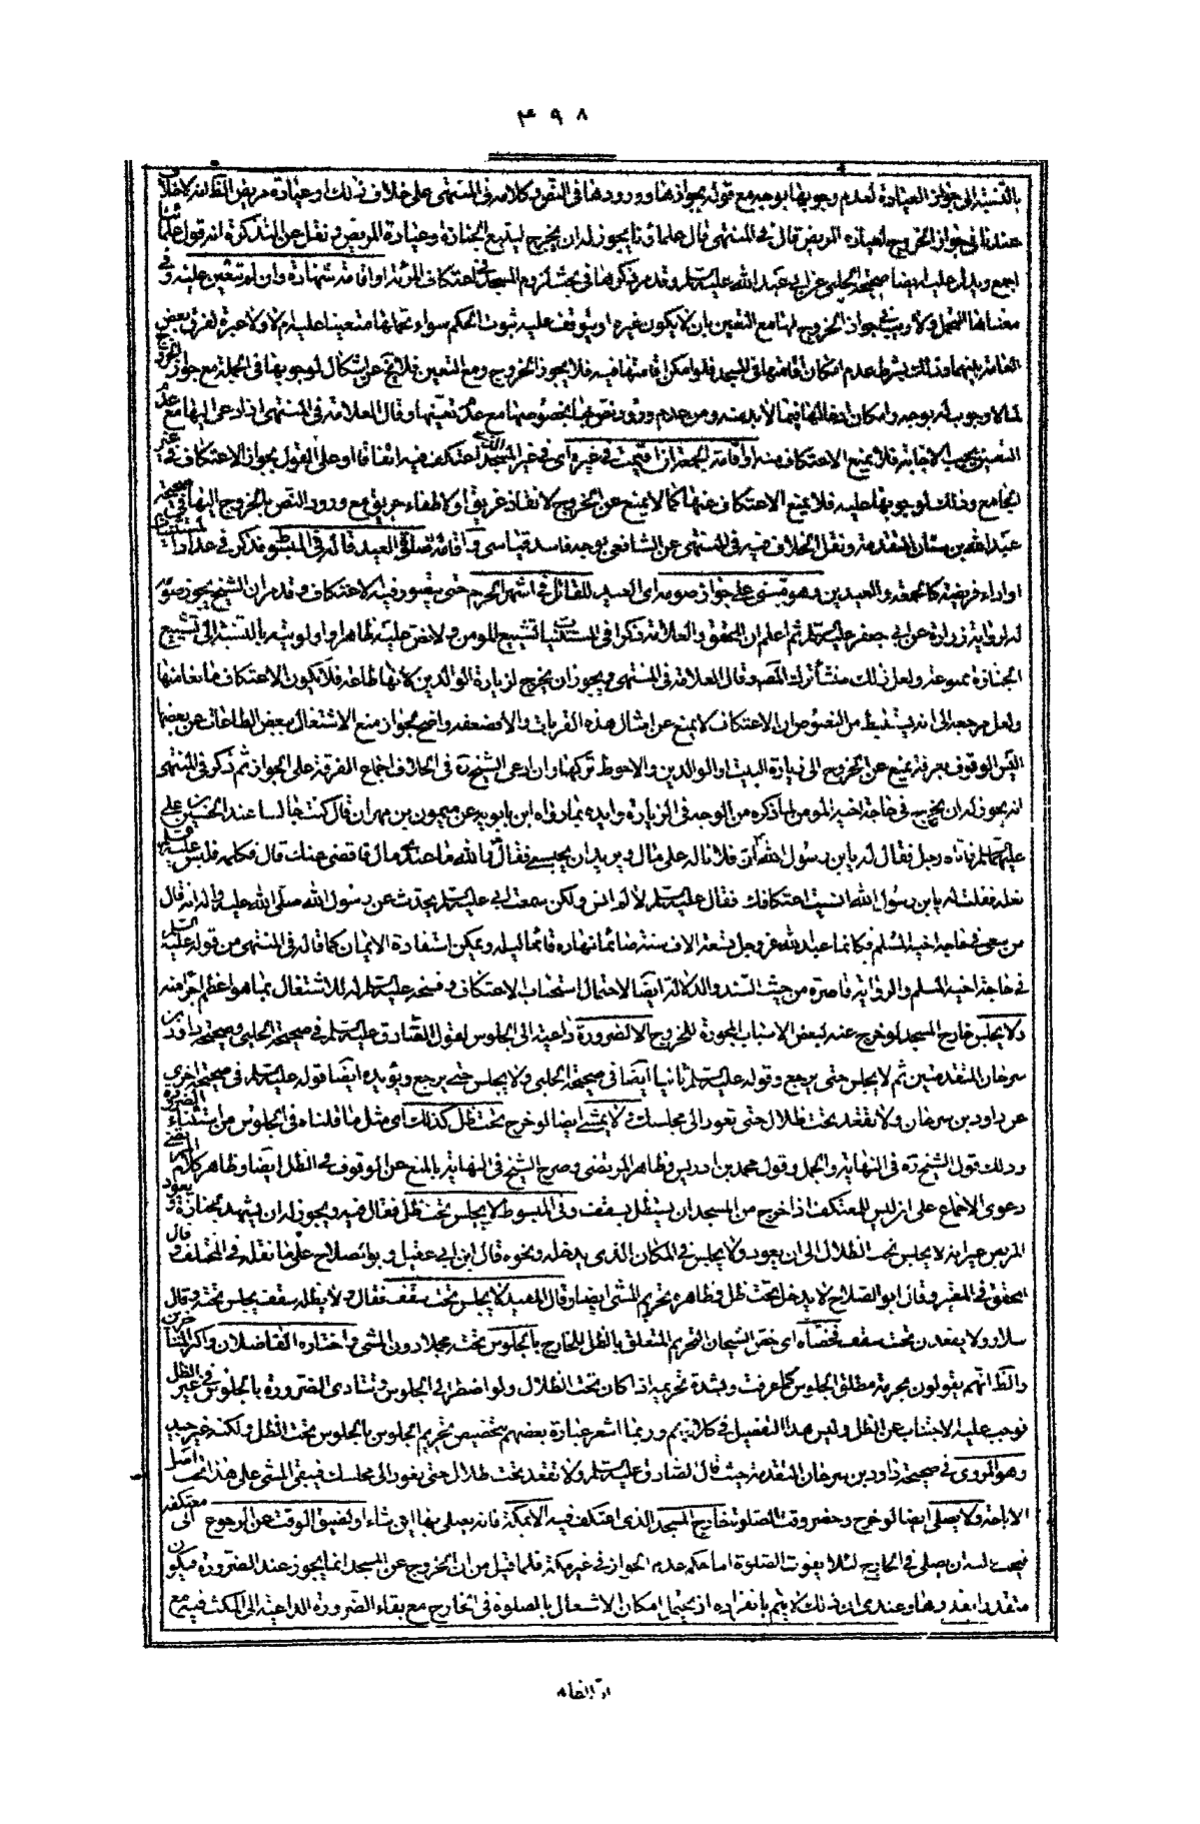 ٤٩٨
بالنسبة الى جواز العيادة لعدم وجوبها بوجه مع قوله بجوازها وورودها في النص وكلامه في المنتهى على خلاف ذلك او عيادة مريض الظ انه لا خلاف
عندنا في جواز الخروج لعيادة المريض قال في المنتهى قال علماؤنا يجوز له ان يخرج ليتبع الجنازة وعيادة المريض ونقل عن التذكرة انه قول علمائنا
اجمع ويدل عليه ايضا صحيحة الحلبي عن ابي عبد الله عليه السلم وقد مر ذكرها في بحث لزوم المسجد في اعتكاف المرئة او اقامة شهادة وان لم تتعين عليه وفي
معناها التحمل ولا ريب في جواز الخروج لها مع التعين بان لا يكون غيره او يتوقف عليه ثبوت الحكم سواء تحملها متعينا عليه ام لا ولا عبرة لفرق بعض
العامة بينهما وذلك بشرط عدم امكان اقامتها في المسجد فلو امكن اقامتها فيه فلا يجوز الخروج ومع التعين فلا يخ عن اشكال لوجوبها في الجملة مع جواز الخروج
لما لا وجوب له بوجه وامكان ادخالها فيما لا بد منه ومن عدم ورود نص فيها بخصوصها مع عدم تعينها وقال العلامة في المنتهى اذا دعى اليها مع عدم
التعين يجب الاجابة فلا يمنع الاعتكاف منه او اقامة الجمعة ان اقيمت في غيره اي في غير المسجد الذي اعتكف فيه اتفاقا او على القول بجواز الاعتكاف في غير
الجامع وذلك لوجوبها عليه فلا يمنع الاعتكاف عنها كما لا يمنع عن الخروج لانقاذ غريق او لاطفاء حريق مع ورود النص بالخروج اليها في صحيحة
عبد الله بن سنان المتقدمة ونقل الخلاف فيه في المنتهى عن الشافعي بوجه فاسد قياسي واقامة صلوة العيد قاله في المبسوط فذكر في عداد المستثنيات
او اداء فريضة كالجمعة والعيدين وهو مبني على جواز صومه اي العيد للقاتل في اشهر الحرم حتى يتصور فيه الاعتكاف وقد مر ان الشيخ يجوز صومه
له لرواية زرارة عن ابي جعفر عليه السلم ثم اعلم ان المحقق والعلامة ذكرا في المستثنيات تشييع المؤمن ولا نص عليه ظاهرا واولويته بالنسبة الى تشييع
الجنازة ممنوعة ولعل ذلك منشأ ترك المصـ وقال العلامة في المنتهى ويجوز ان يخرج لزيارة الوالدين لانها طاعة فلا يكون الاعتكاف مانعا منها
ولعل مرجعه الى انه يستنبط من النصوص ان الاعتكاف لا يمنع عن امثال هذه القربات والا فضعفه واضح لجواز منع الاشتغال ببعض الطاعات عن بعضها
اليس الوقوف بعرفة يمنع عن الخروج الى زيارة البيت او الوالدين والاحوط تركها وان ادعى الشيخ ره في الخلاف اجماع الفرقة على الجواز ثم ذكر في المنتهى
انه يجوز له ان يخرج في حاجة اخيه المؤمن لما ذكره من الوجه في الزيارة وايده بما رواه ابن بابويه عن ميمون بن مهران قال كنت جالسا عند الحسن بن علي
عليهما السلم فاتاه رجل فقال له يا بن رسول الله ان فلانا له علي مال ويريد ان يحبسني فقال والله ما عندي مال فاقضي عنك قال فكلمه فلبس عليه السلم
نعله فقلت له يا بن رسول الله انسيت اعتكافك فقال عليه السلم لا لم انس ولكن سمعت ابي عليه السلم يحدث عن رسول الله صلى الله عليه واله انه قال
من سعى في حاجة اخيه المسلم فكانما عبد الله عز وجل تسعة الاف سنة صائما نهاره قائما ليله ويمكن استفادة الايمان كما قاله في المنتهى من قوله عليه السلم
في حاجة اخيه المسلم والرواية قاصرة من حيث السند والدلالة ايضا لاحتمال استحباب الاعتكاف وفسخه عليه السلم له للاشتغال بما هو اعظم اجرا منه
ولا يجلس خارج المسجد لو خرج عنه لبعض الاسباب المجوزة للخروج الا لضرورة داعية الى الجلوس لقول الصادق عليه السلم في صحيحة الحلبي وصحيحة داود بن
سرحان المتقدمتين ثم لا يجلس حتى يرجع وقوله عليه السلم ثانيا ايضا في صحيحة الحلبي ولا يجلس حتى يرجع ويؤيده ايضا قوله عليه السلم في صحيحة اخرى
عن داود بن سرحان ولا تقعد تحت ظلال حتى تعود الى مجلسك ولا يمشي ايضا لو خرج تحت ظل كذلك اي مثل ما قلناه في الجلوس من استثناء الضرورة
وذلك قول الشيخ ره في النهاية والجمل وقول محمد بن ادريس وظاهر المرتضى وصرح الشيخ في النهاية بالمنع عن الوقوف في الظل ايضا وظاهر كلام المرتضى
دعوى الاجماع على انه ليس للمعتكف اذا خرج من المسجد ان يستظل بسقف وفي المبسوط لا يجلس تحت ظل فقال فيه ويجوز له ان يشهد جنازة ويعود
المريض غير انه لا يجلس تحت الظلال الى ان يعود ولا يجلس في المكان الذي يدخله ونحوه قال ابن ابي عقيل وبو الصلاح على ما نقله في المختلف وقال
المحقق في المعتبر وقال ابو الصلاح لا يدخل تحت ظل وظاهره تحريم المشي ايضا وقال المفيد لا يجلس تحت سقف فقال ولا يظله سقف يجلس تحته وقال
سلار ولا يقعدن تحت سقف فخصاه اي خص الشيخان التحريم المتعلق بالظل للخارج بالجلوس تحته دون المشي واختاره الفاضلان واكثر المتاخرين
والظ انهم يقولون بحرمة مطلق الجلوس كما عرفت وبشدة تحريمه اذا كان تحت الظلال ولو اضطر الى الجلوس وتتادى الضرورة بالجلوس في غير الظل
فوجب عليه الاجتناب عن الظل وليس هذا التفصيل في كلامهم وربما اشعر عبارة بعضهم بتخصيص تحريم الجلوس بالجلوس تحت الظل ولكنه غير جيد
وهو المروي في صحيحة داود بن سرحان المتقدمة حيث قال الصادق عليه السلم ولا تقعد تحت ظلال حتى تعود الى مجلسك فيبقى المشي على هذا تحت اصل
الاباحة ولا يصلي ايضا لو خرج وحضر وقت الصلوة خارج المسجد الذي اعتكف فيه الا بمكة فانه يصلي بها اين شاء او لضيق الوقت عن الرجوع الى معتكفه
فيجب له ان يصلي في الخارج لئلا يفوت الصلوة اما حكم عدم الجواز في غير مكة فلما قيل من ان الخروج عن المسجد انما يجوز عند الضرورة فيكون
متقدرا بقدرها وعندي ان ذلك لا يتم بانفراده اذ يحتمل امكان الاشتغال بالصلوة في الخارج مع بقاء الضرورة الداعية الى المكث فيه مع